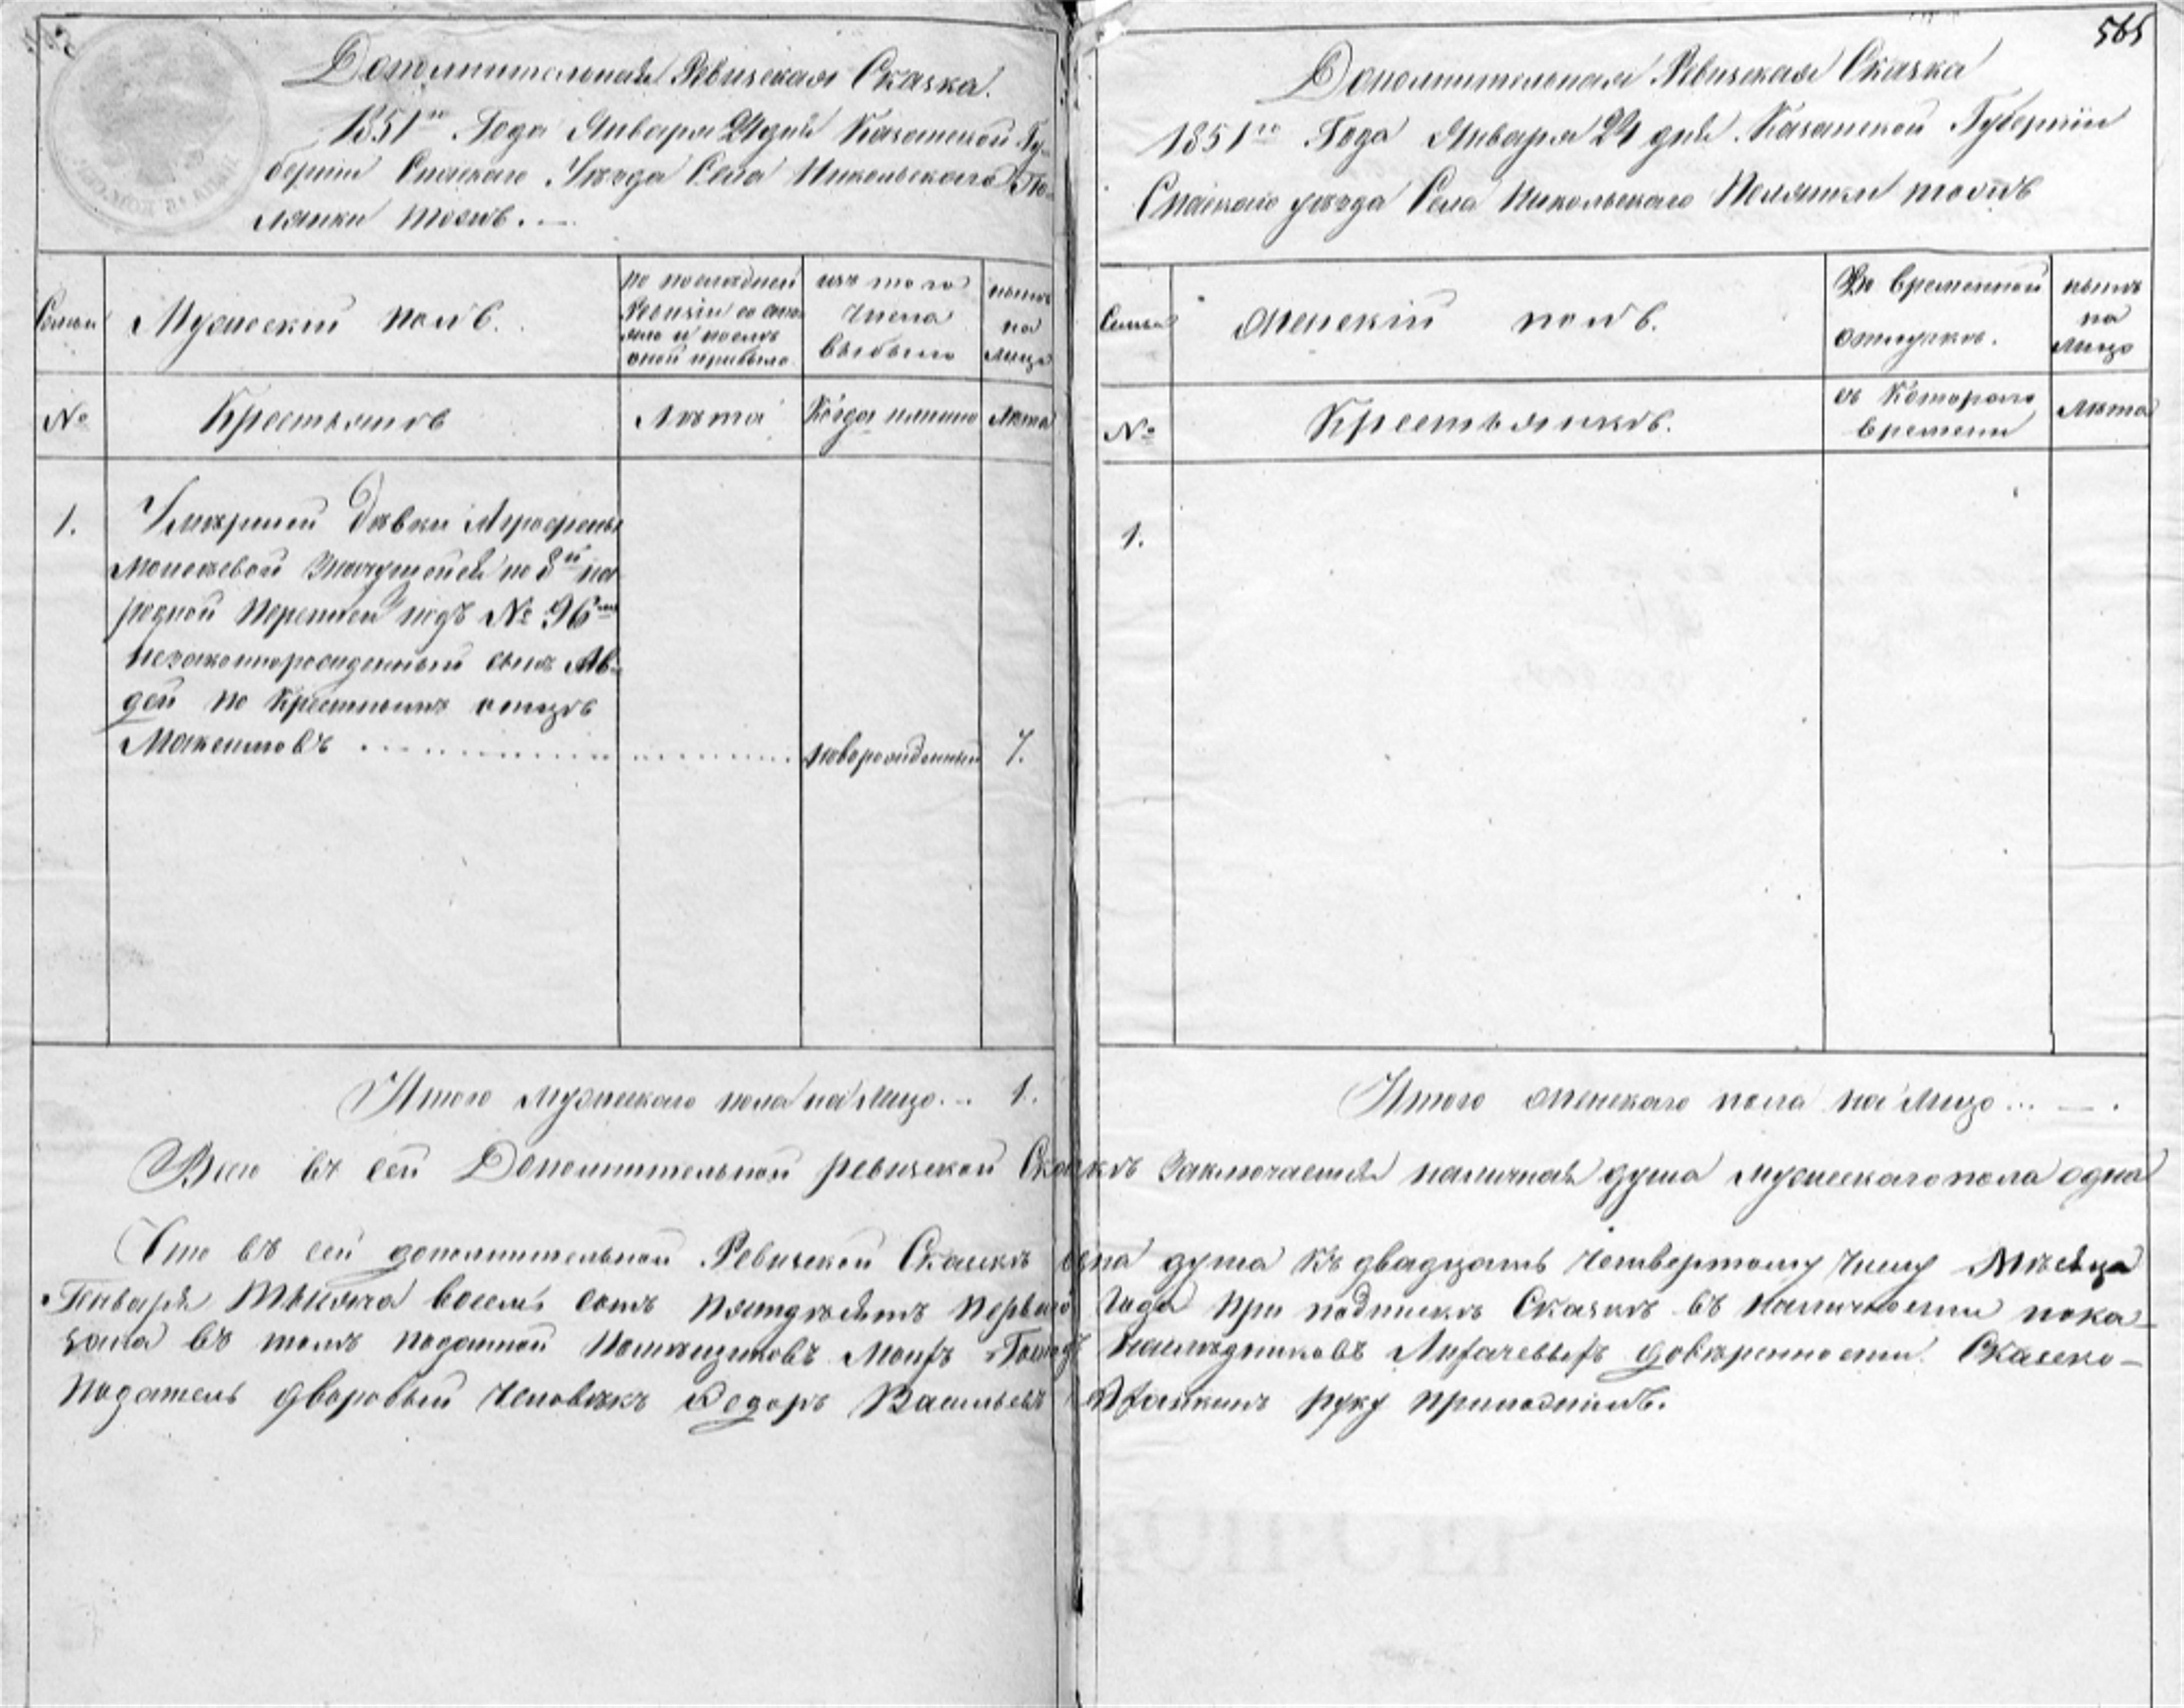 565
Дополнительная Ревизская Сказка.
1851го Года Января 24 дня Казанской Гу-
берніи Спаскаго Уѣзда Села Никольскаго По-
лянки тожъ.
Семьи
Мужескій полъ.
по последней Ревизіи состояло и послѣ оной прибыло
изъ того числа выбыло
нынѣ на лицо
№
Крестьянъ
Лѣта
Когда имянно
Лѣта
1.
Умершей Дѣвки Агрофены
Моисевой Значущейся по 8й на
родной переписи подъ № 96мъ
незаконнорожденный сынъ Ав-
дей по Крестномъ отцѣ
Максимовъ
новорожденный
7.
Итого мужескаго пола на лицо... 1.
Дополнительная Ревизская Сказка
1851го Года Января 24 дня Казанской Губерніи
Спаскаго уѣзда Села Никольскаго Полянки тожъ
Семьи
Женскій полъ.
Во временной отлучкѣ.
нынѣ на лицо
№
Крестьянокъ.
съ Котораго времени
Лѣта
1.
Итого женскаго пола на лицо... — .
Всего въ сей Дополнительной ревизской Сказкѣ заключается наличная душа мужескаго пола одна
Что въ сей дополнительной Ревизской Сказкѣ душа къ двадцать четвертому числу Мѣсяца
Генваря Тысяча восемь сотъ пятдѣсятъ перваго Года при подпискѣ Сказкѣ въ наличности пока-
зана въ томъ поданной Помѣщиковъ Моихъ Господъ наслѣдниковъ Лихачевыхъ довѣренности Сказко-
податель дворовый человѣкъ Ѳедоръ Васильевъ руку приложилъ.